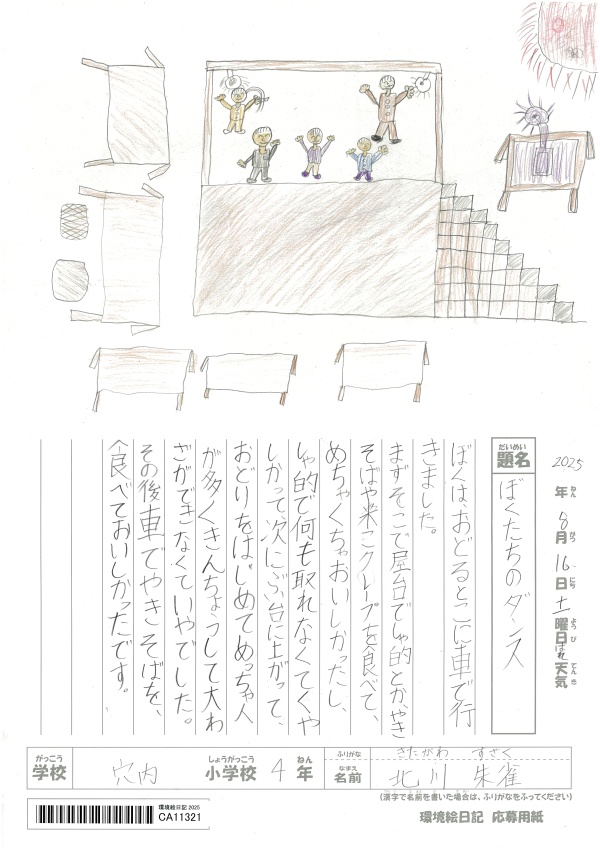 2025年8月16日土曜日
ねん がつ にち ようび
はれ天気
てんき
だいめい
題名
ぼくたちのダンス
ぼくは、おどるとこに車で行
きました。
まずそこで屋台でしゃ的とか、やき
そばや米こクレープを食べて、
めちゃくちゃおいしかったし、
しゃ的で何も取れなくてくや
しかって、次にぶ台に上がって、
おどりをはじめてめっちゃ人
が多くきんちょうして大わ
ざができなくていやでした。
その後車でやきそばを、
食べておいしかったです。
がっこう
学校
穴内
しょうがっこう
小学校
4
ねん
年
ふりがな
きたがわ すざく
なまえ
名前
北川 朱雀
(漢字で名前を書いた場合は、ふりがなをふってください)
環境絵日記 2025
CA11321
環境絵日記 応募用紙